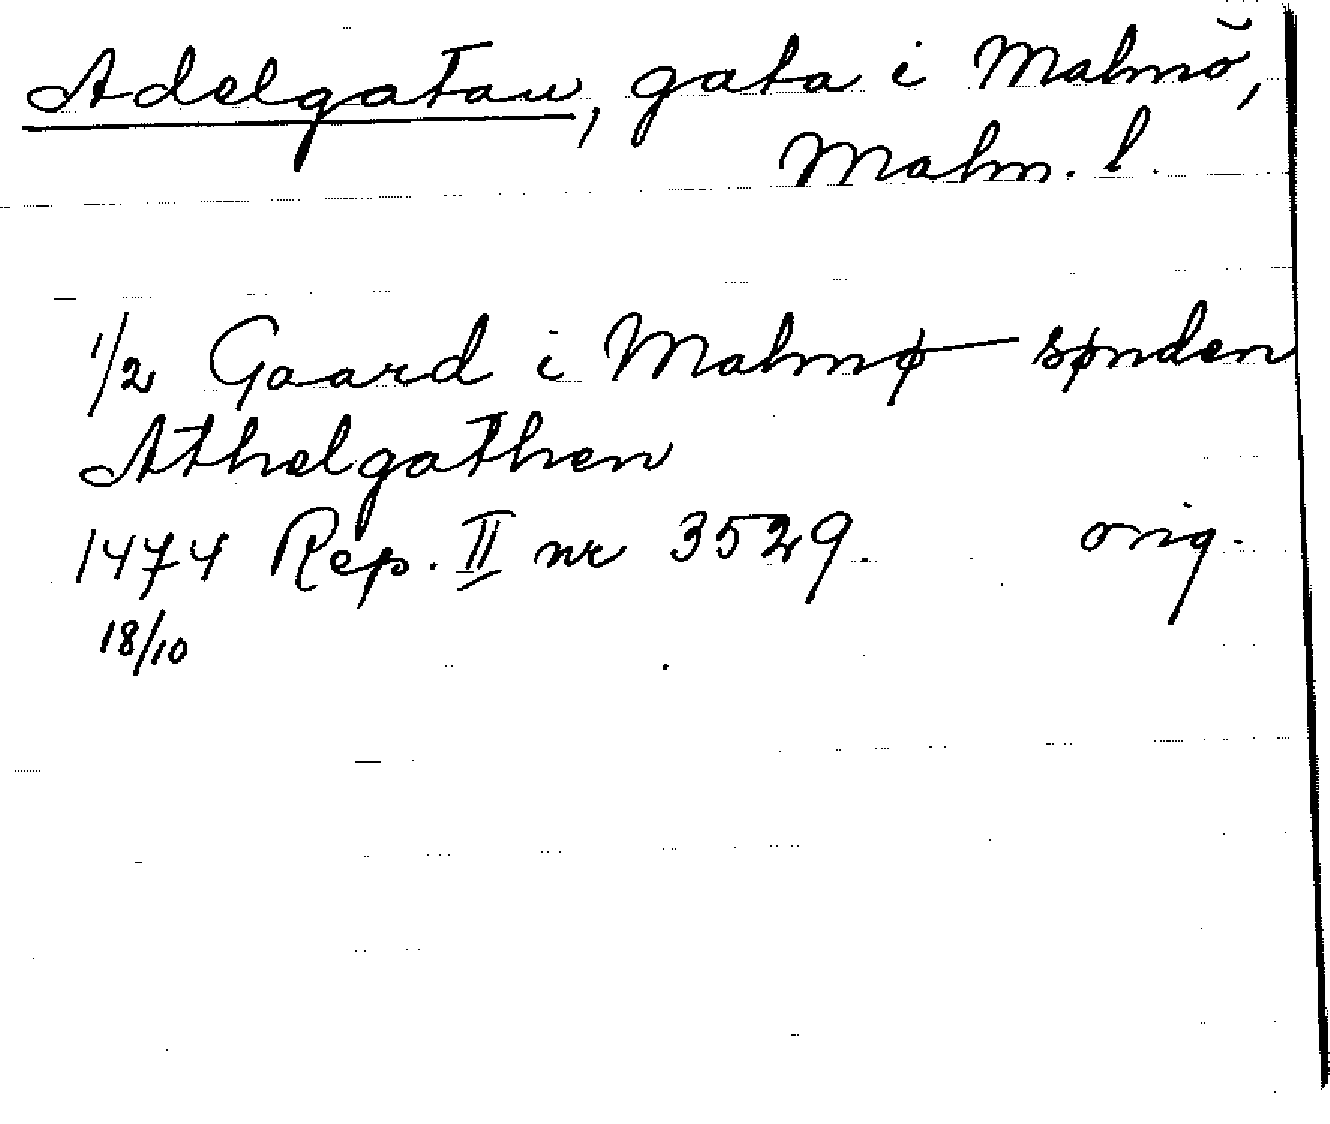 Adelgatan, gata i Malmö,
Malm. l.
1/2 Gaard i Malmø sønden
Athelgathen
1474 Rep. II nr 3529 orig.
18/10